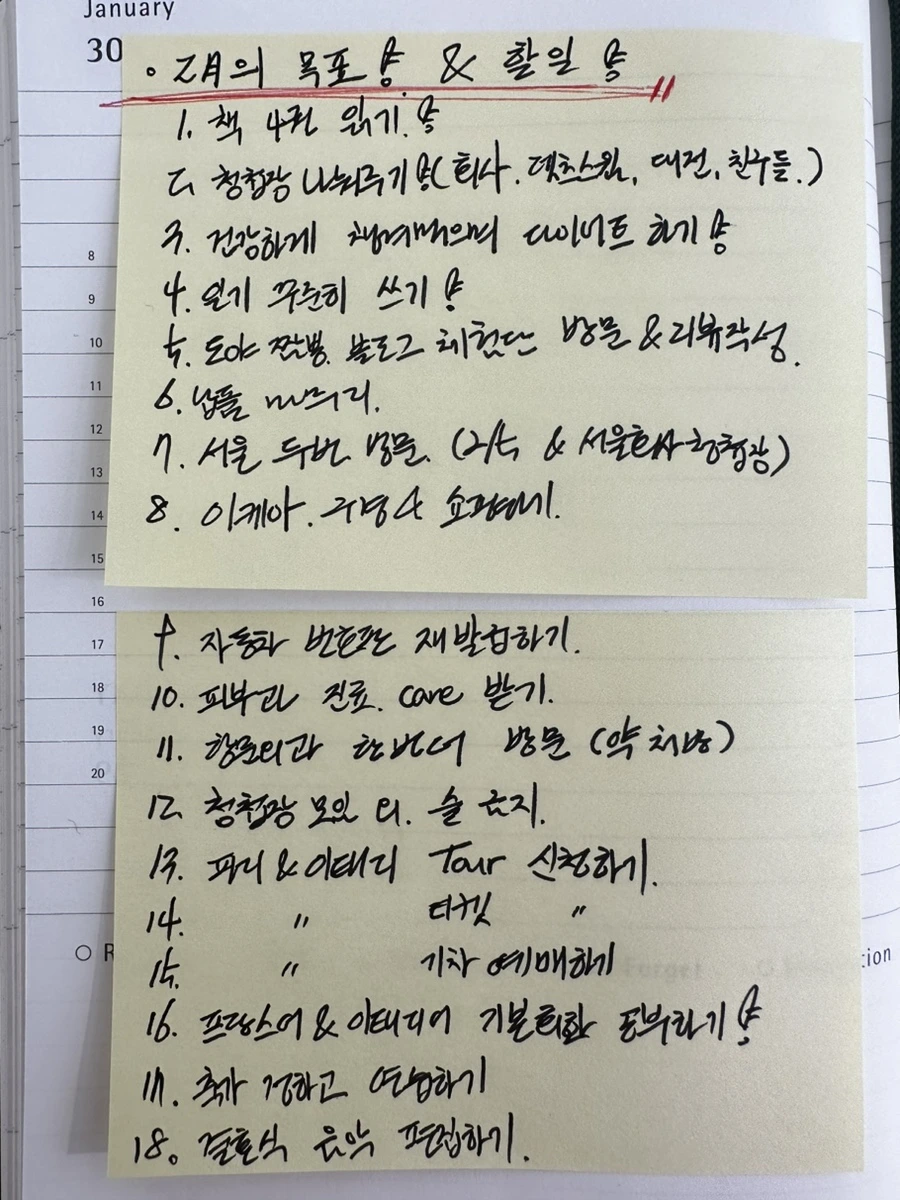 January
30
• 2月의 목표! & 할일!
1. 책 4권 읽기!
2. 청첩장 나눠주기!(회사, 대전, 친구들.)
3. 건강하게 챙겨먹으며 다이어트 하기!
8
4. 일기 꾸준히 쓰기!
9
5. 도야 짬뽕 블로그 체험단 방문 & 리뷰작성.
10
6. 납품 마무리.
11
12
7. 서울 두번 방문. (2/5 & 서울회사청첩장)
13
8. 이케아. 구경 & 쇼핑하기.
14
15
16
9. 자동차 번호판 재발급하기.
17
10. 피부과 진료. care 받기.
18
11. 항문외과 한번더 방문 (약 처방)
19
20
12. 청첩장 모임 때. 술 금지.
13. 파리 & 이태리 Tour 신청하기.
14. " 티켓 "
15. " 기차 예매하기
16. 프랑스어 & 이태리어 기본회화 공부하기!
17. 축가 정하고 연습하기
18. 결혼식 음악 편집하기.